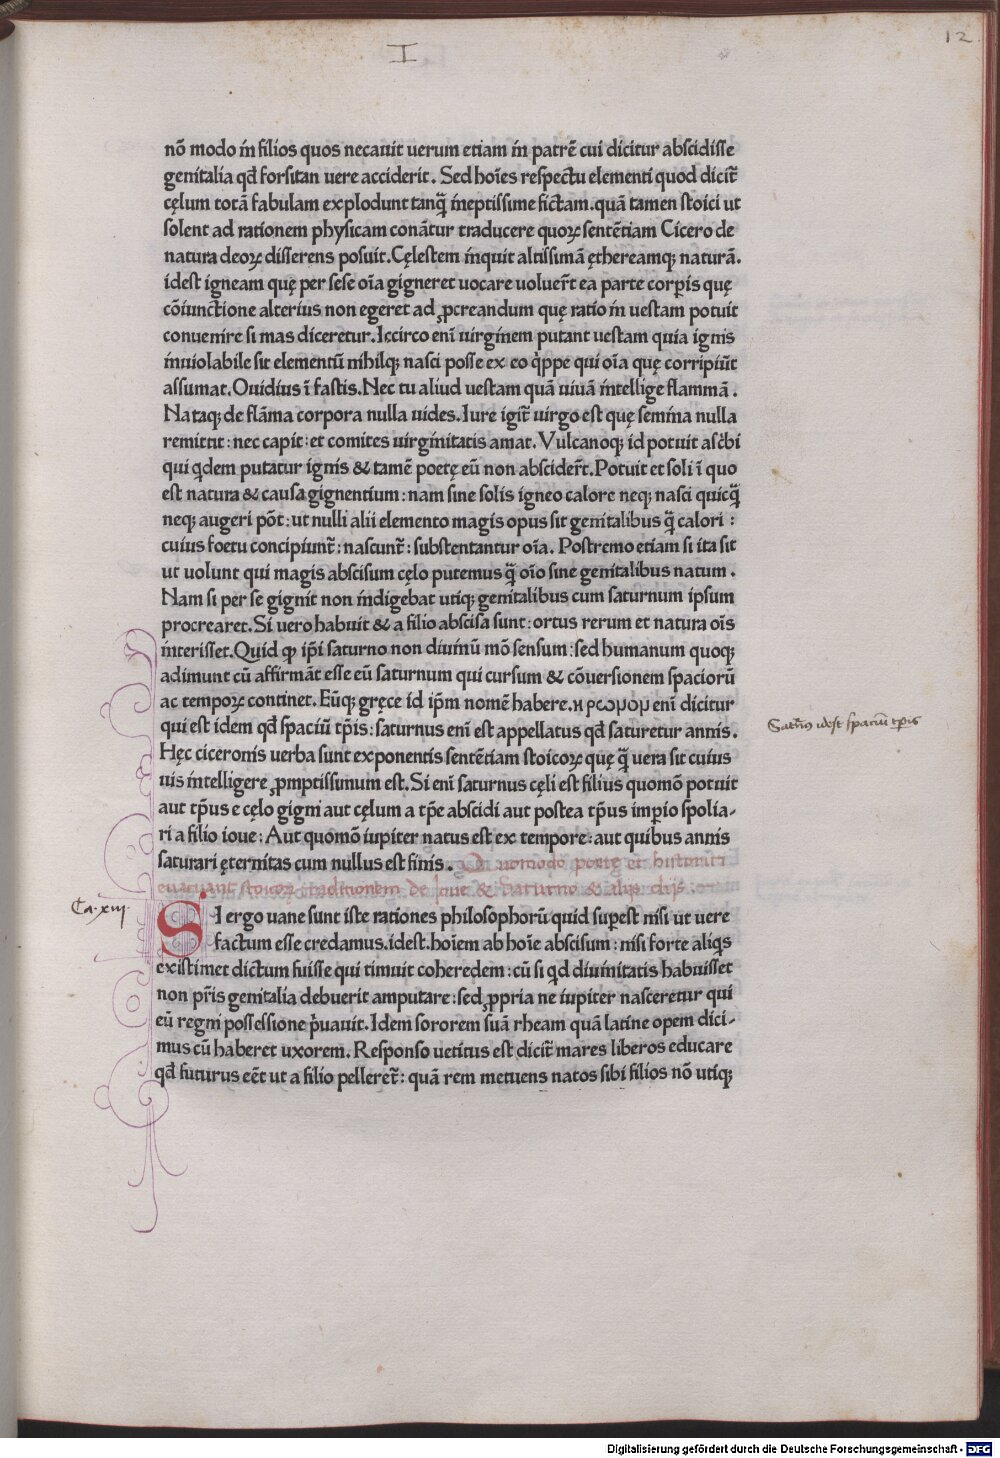 I
12
nō modo ín filios quos necauit uerum etiam ín patrē cui dicitur abscidisse
genitalia qđ forsitan uere acciderit. Sed hoīes respectu elementi quod dicit̃
cęlum totā fabulam explodunt tanq̃ íneptissime fictam. quā tamen stoici ut
solent ad rationem physicam conātur traducere quoꝝ sentētiam Cicero de
natura deoꝝ disserens posuit. Cęlestem ínquit altissimā ęthereamq; naturā.
idest igneam quę per sese oīa gigneret uocare uoluer̃t ea parte corꝑis quę
cōiunctione alterius non egeret ad ꝓcreandum quę ratio ín uestam potuit
conuenire si mas diceretur. Iccirco enī uirginem putant uestam quia ignis
ínuiolabile sit elementū nihilq; nasci posse ex eo q̇ppe qui oīa quę corripiūt
assumat. Ouidius ī fastis. Nec tu aliud uestam quā uiuā íntellige flammā.
Nataq; de flāma corpora nulla uides. Iure igit̃ uirgo est quę semina nulla
remittit: nec capit: et comites uirginitatis amat. Vulcanoq; id potuit ascb̄i
qui q̇dem putatur ignis & tamē poetę eū non abscider̃t. Potuit et soli ī quo
est natura & causa gignentium: nam sine solis igneo calore neq; nasci quicq̃
neq; augeri pōt: ut nulli alii elemento magis opus sit genitalibus q̃ calori:
cuius foetu concipiunt̃: nascunt̃: substentantur oīa. Postremo etiam si ita sit
ut uolunt qui magis abscisum cęlo putemus q̃ oīo sine genitalibus natum.
Nam si per se gignit non índigebat utiq; genitalibus cum saturnum ipsum
procrearet. Si uero habuit & a filio abscisa sunt: ortus rerum et natura oīs
ínterisset. Quid ꝙ ip̄i saturno non diuinū mō sensum: sed humanum quoq;
adimunt cū affirmāt esse eū saturnum qui cursum & cōuersionem spaciorū
ac tempoꝝ continet. Eūq; gręce id ip̄m nomē habere. ϰρωμομ enī dicitur
qui est idem qđ spaciū tp̄is: saturnus enī est appellatus qđ saturetur annis.
Satn̄us idest spaciū tp̄is
Hęc ciceronis uerba sunt exponentis sentētiam stoicoꝝ quę q̃ uera sit cuius
uis íntelligere ꝓmptissimum est. Si enī saturnus cęli est filius quomō potuit
aut tp̄us e cęlo gigni aut cęlum a tp̄e abscidi aut postea tp̄us imꝑio spolia-
ri a filio ioue: Aut quomō iupiter natus est ex tempore: aut quibus annis
saturari ęternitas cum nullus est finis. Quomodo poetę et historici
euacuant stoicoꝝ traditionem de Ioue & Saturno & alijs dijs.
Ca. xiii.
SI ergo uane sunt iste rationes philosophorū quid suꝑest nisi ut uere
factum esse credamus. idest. hoīem ab hoīe abscisum: nisi forte aliq̇s
existimet dictum fuisse qui timuit coheredem: cū si q̇d diuinitatis habuisset
non pr̄is genitalia debuerit amputare: sed ꝓpria ne iupiter nasceretur qui
eū regni possessione p̄uauit. Idem sororem suā rheam quā latine opem dici-
mus cū haberet uxorem. Responso uetitus est dicit̃ mares liberos educare
qđ futurus eēt ut a filio pelleret̃: quā rem metuens natos sibi filios nō utiq;
Digitalisierung gefördert durch die Deutsche Forschungsgemeinschaft - DFG